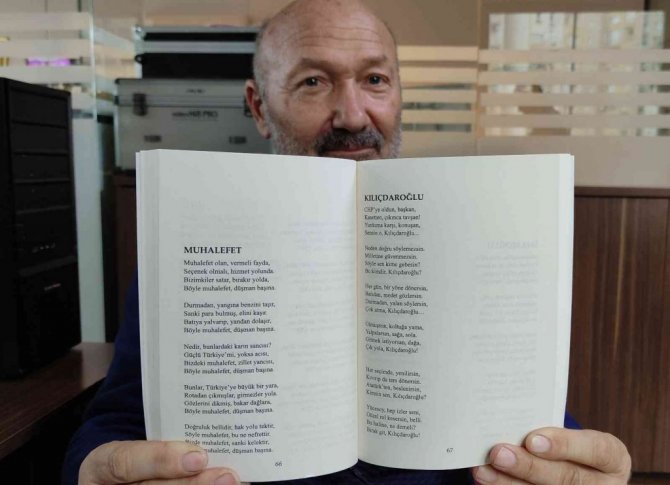 MUHALEFET
Muhalefet olan, vermeli fayda,
Seçenek olmalı, hizmet yolunda.
Bizimkiler satar, bırakır yolda,
Böyle muhalefet, düşman başına.
Durmadan, yangına benzini taşır,
Sanki para bulmuş, elini kaşır.
Batıya yalvarıp, yandan dolaşır,
Böyle muhalefet, düşman başına.
Nedir, bunlardaki karın sancısı?
Güçlü Türkiye'mi, yoksa acısı,
Bizdeki muhalefet, zillet yancısı,
Böyle muhalefet, düşman başına
Bunlar, Türkiye'ye büyük bir yara,
Rotadan çıkmışlar, girmezler yola.
Gözlerini dikmiş, bakar dağlara,
Böyle muhalefet, düşman başına.
Doğruluk bellidir, hak yolu tektir,
Söyle muhalefet, bu ne nefrettir.
Bizde muhalefet, sanki kelektir,
Böyle muhalefet, düşman başına.
66
KILIÇDAROĞLU
CHP'ye oldun, başkan,
Kasetten, çıkınca tavşan!
karşı, konuşan,
Sensin o, Kılıçdaroğlu...
Neden doğru söylemezsin,
Milletine güvenmezsin.
Söyle sen kime
Bu kindir, Kılıçdaroğlu?
Her gün, bir yöne dönersin,
medet gözlersin.
Durmadan, yalan söylersin,
Çok atma, Kılıçdaroğlu...
koltuğu yama,
sağa, sola.
Gitmek istiyorsan, dağa,
Çık yola, Kılıçdaroğlu!
Her seçimde, yenilirsin,
Kıvırıp da ters dönersin.
Atatürk'ten, beslenirsin,
Kimsin sen, Kılıçdaroğlu?
hep izler seni,
kesersin, belli.
Bu haline, ne demeli?
Bırak git, Kılıçdaroğlu!
67